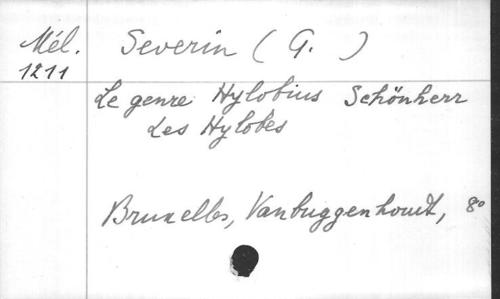 Mél. Severin (G. )
1211
Le genre Hylobius Schönherr
Les Hylobes
Bruxelles, Vanbuggenhoudt, 8°